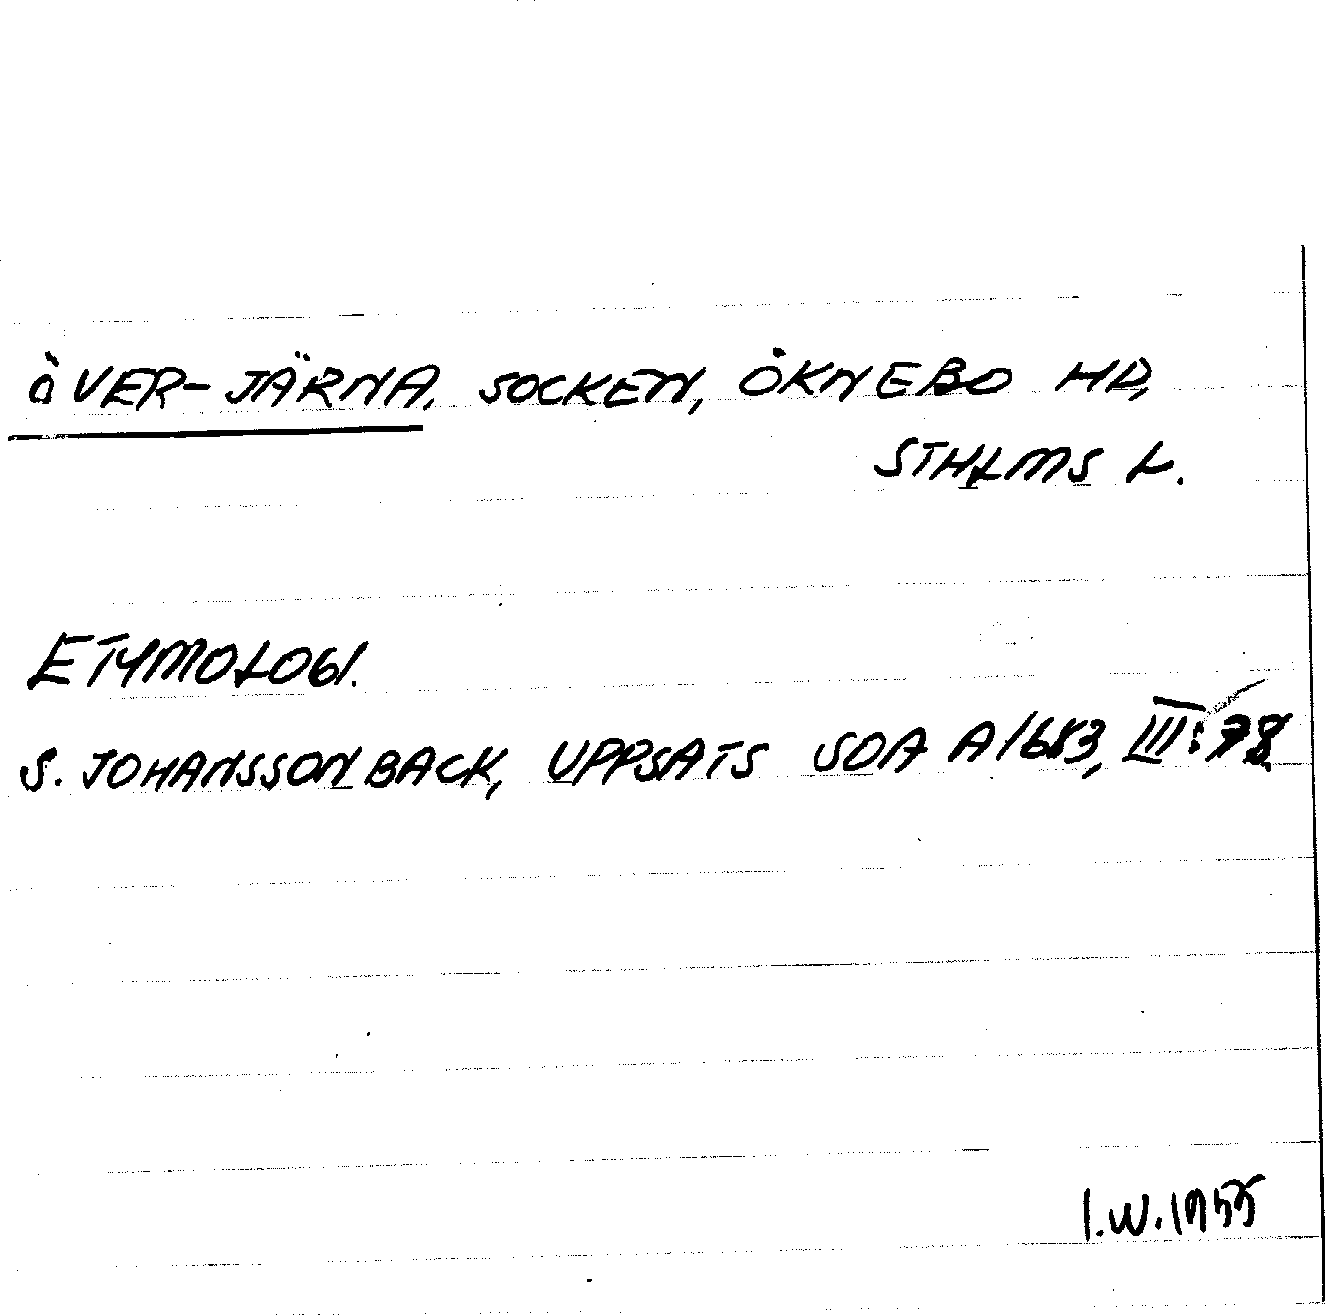 ÖVER-JÄRNA, SOCKEN, ÖKNEBO HD,
STHLMS L.
ETYMOLOGI.
S. JOHANSSON BACK, UPPSATS SOA A/683, III:78
I.W. 1955